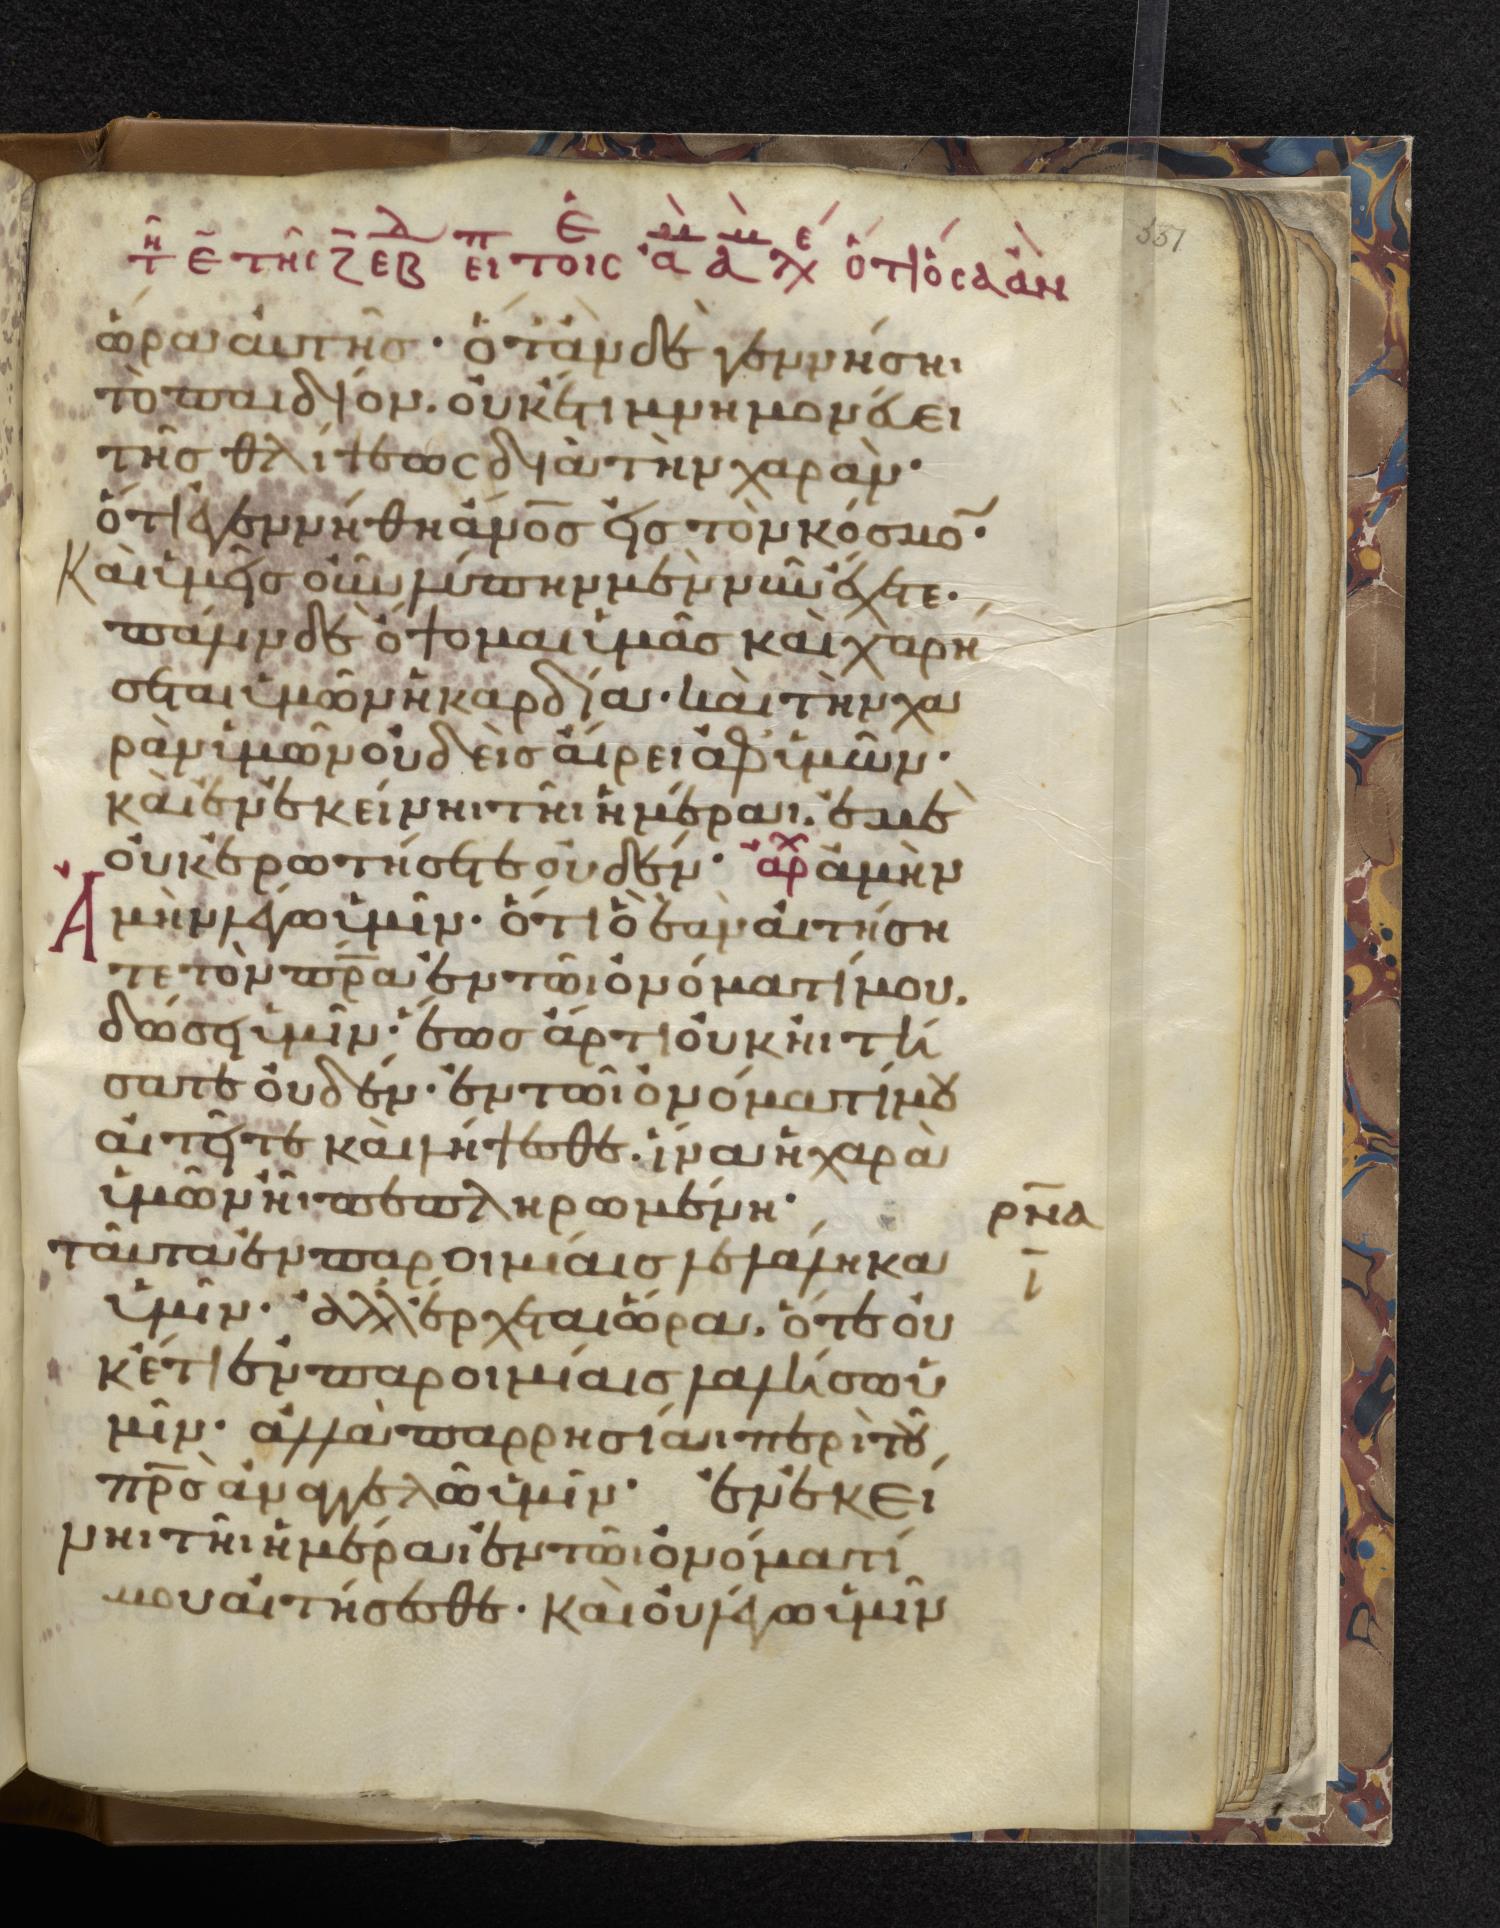 τῆ ε̄ τῆς ζ̄ ἑβ εἶπ τοῖς ἀμ ἀμ λέγω ὅτι ὃς ἂν
ὥρα αὐτῆς· ὅταν δὲ γεννήσηι
τὸ παιδίον. οὐκέτι μνημονεύει
τῆς θλίψεως διὰ τὴν χαρὰν·
ὅτι ἐγεννήθη ἄν̅ο̅ς εἰς τὸν κόσμο̅·
Καὶ ὑμεῖς οὖν λύπην μὲν νῦν ἔχετε.
πάλιν δὲ ὄψομαι ὑμᾶς καὶ χαρή
σεται ὑμῶν ἡ καρδία· καὶ τὴν χα
ρὰν ὑμῶν οὐδεὶς αἴρει ἀφ ὑμῶν·
καὶ ἐν ἐκείνηι τῆι ἡμέραι. ἐμὲ
οὐκ ἐρωτήσετε οὐδέν· ἀρχ ἀμὴν
Ἀμὴν λέγω ὑμῖν· ὅτι ὃ ἐὰν αἰτήση
τε τὸν π̅ρ̅α ἐν τῶι ὀνόματί μου.
δώσει ὑμῖν· ἕως ἄρτι οὐκ ἠιτή
σατε οὐδέν· ἐν τῶι ὀνόματί μου
αἰτεῖτε καὶ λήψεσθε. ἵνα ἡ χαρὰ
ὑμῶν ἦι πεπληρωμένη·
ρ̅ν̅α
ι̅
ταῦτα ἐν παροιμίαις λελάληκα
ὑμῖν· ἀλλ' ἔρχεται ὥρα. ὅτε οὐ
κέτι ἐν παροιμίαις λαλήσω ὑ
μῖν· ἀλλὰ παρρησίαι περὶ τοῦ
π̅ρ̅ς ἀναγγελῶ ὑμῖν· ἐν ἐκεί
νηι τῆι ἡμέραι ἐν τῶι ὀνόματί
μου αἰτήσεσθε· καὶ οὐ λέγω ὑμῖν